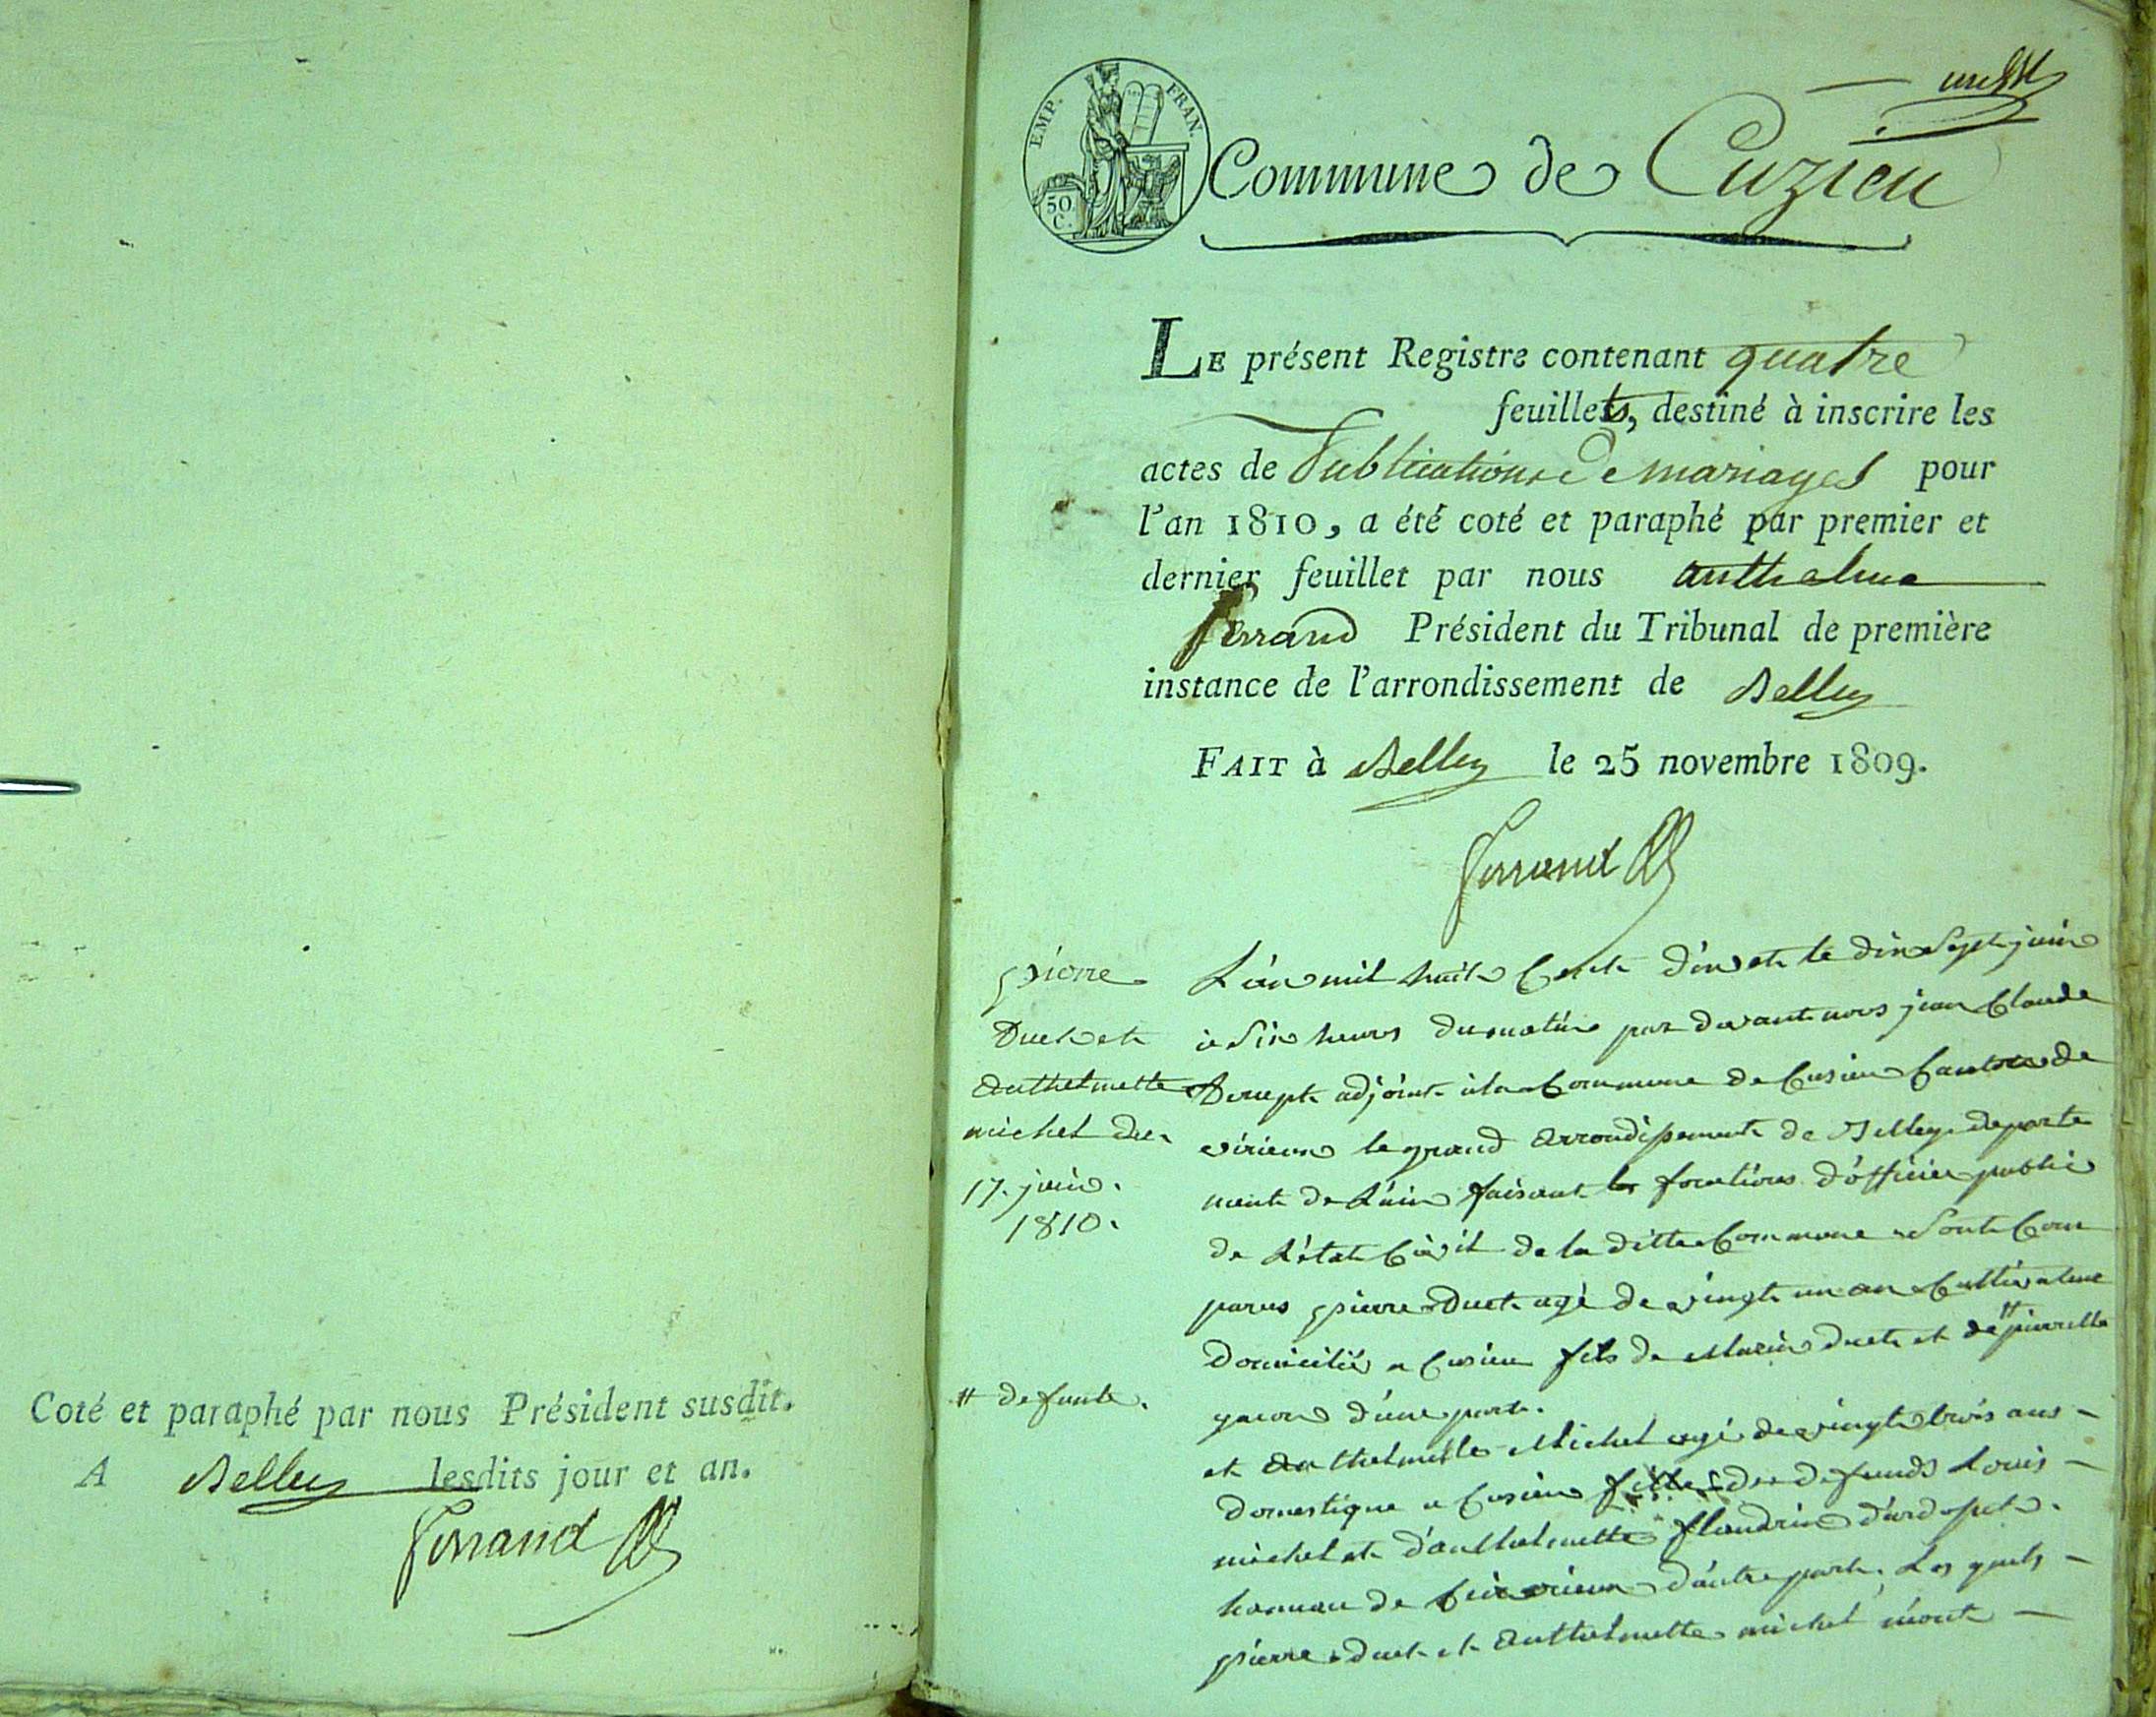 Coté et paraphé par nous Président susdit.
A Belley lesdits jour et an.
Ferrand
EMP. FRAN.
50 C.
Commune de Cuzieu
LE présent Registre contenant quatre
feuillets, destiné à inscrire les
actes de Publications de mariages pour
l'an 1810, a été coté et paraphé par premier et
dernier feuillet par nous anthelme
ferrand Président du Tribunal de première
instance de l'arrondissement de Belley
FAIT à Belley le 25 novembre 1809.
Ferrand
pierre
Duet et
Anthelmette
michel du
17. juin.
1810.
# defunte.
L'an mil huit Cent dix et le dix Sept juin
à Six heures du matin par devant nous jean Claude
adjoint à la Commune de Cusieu Canton de
virieux le grand arrondissement de Belley departe
ment de L'ain faisant les fonctions d'officier public
de L'état Civil de la ditte Commune Sont Com
parus pierre Duet agé de vingt un an Cultivateur
Domicilié a Cusieu fils de Marin duet et de # pierrette
d'une part.
et Anthelmette Michel agé de vingt trois ans
Domestique a Cusieu fille de defunds Louis
michel et d'anthelmette flandrin
hameau de d'autre part. Les quels
pierre duet et Anthelmette michel m'ont